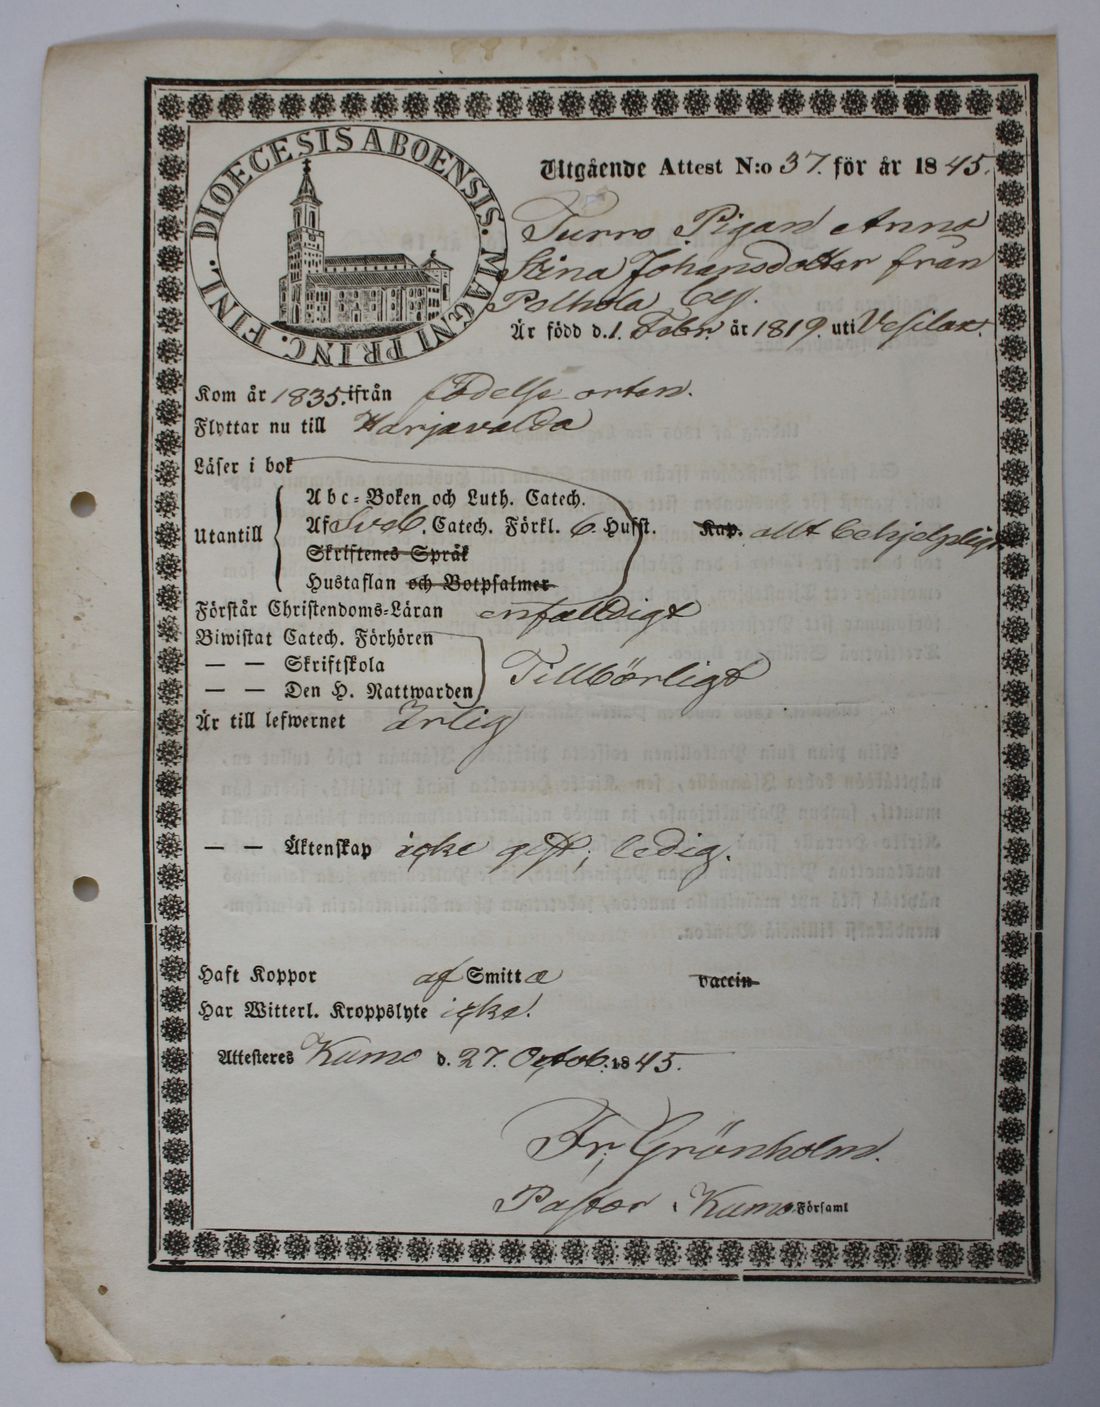 DIOECESIS ABOENSIS. MAGNI PRINC. FINL.
Utgående Attest N:o 37. för år 1845.
Turro Pigan Anna
Stina Johansdotter från
Polhola By.
Är född d. 1. Febr. år 1819. uti Vesilax.
Kom år 1835. ifrån födelse orten.
Flyttar nu till Harjavalda
Läser i bok
Abc-Boken och Luth. Catech.
Utantill Af Sveb. Catech. Förkl. 6. Hufst. Kap. allt behjelpligt
Skriftenes Språk
Hustaflan och Botpsalmer
Förstår Christendoms-Läran enfalldigt
Biwistat Catech. Förhören
— — Skriftskola Tillbörligt
— — Den H. Nattwarden
Är till lefwernet ärlig
— — Äktenskap icke gift; ledig.
Haft Koppor af Smitta vaccin
Har Witterl. Kroppslyte icke.
Attesteres Kumo d. 27. Octob. 1845.
Fr. Grönholm.
Pastor i Kumo Församl